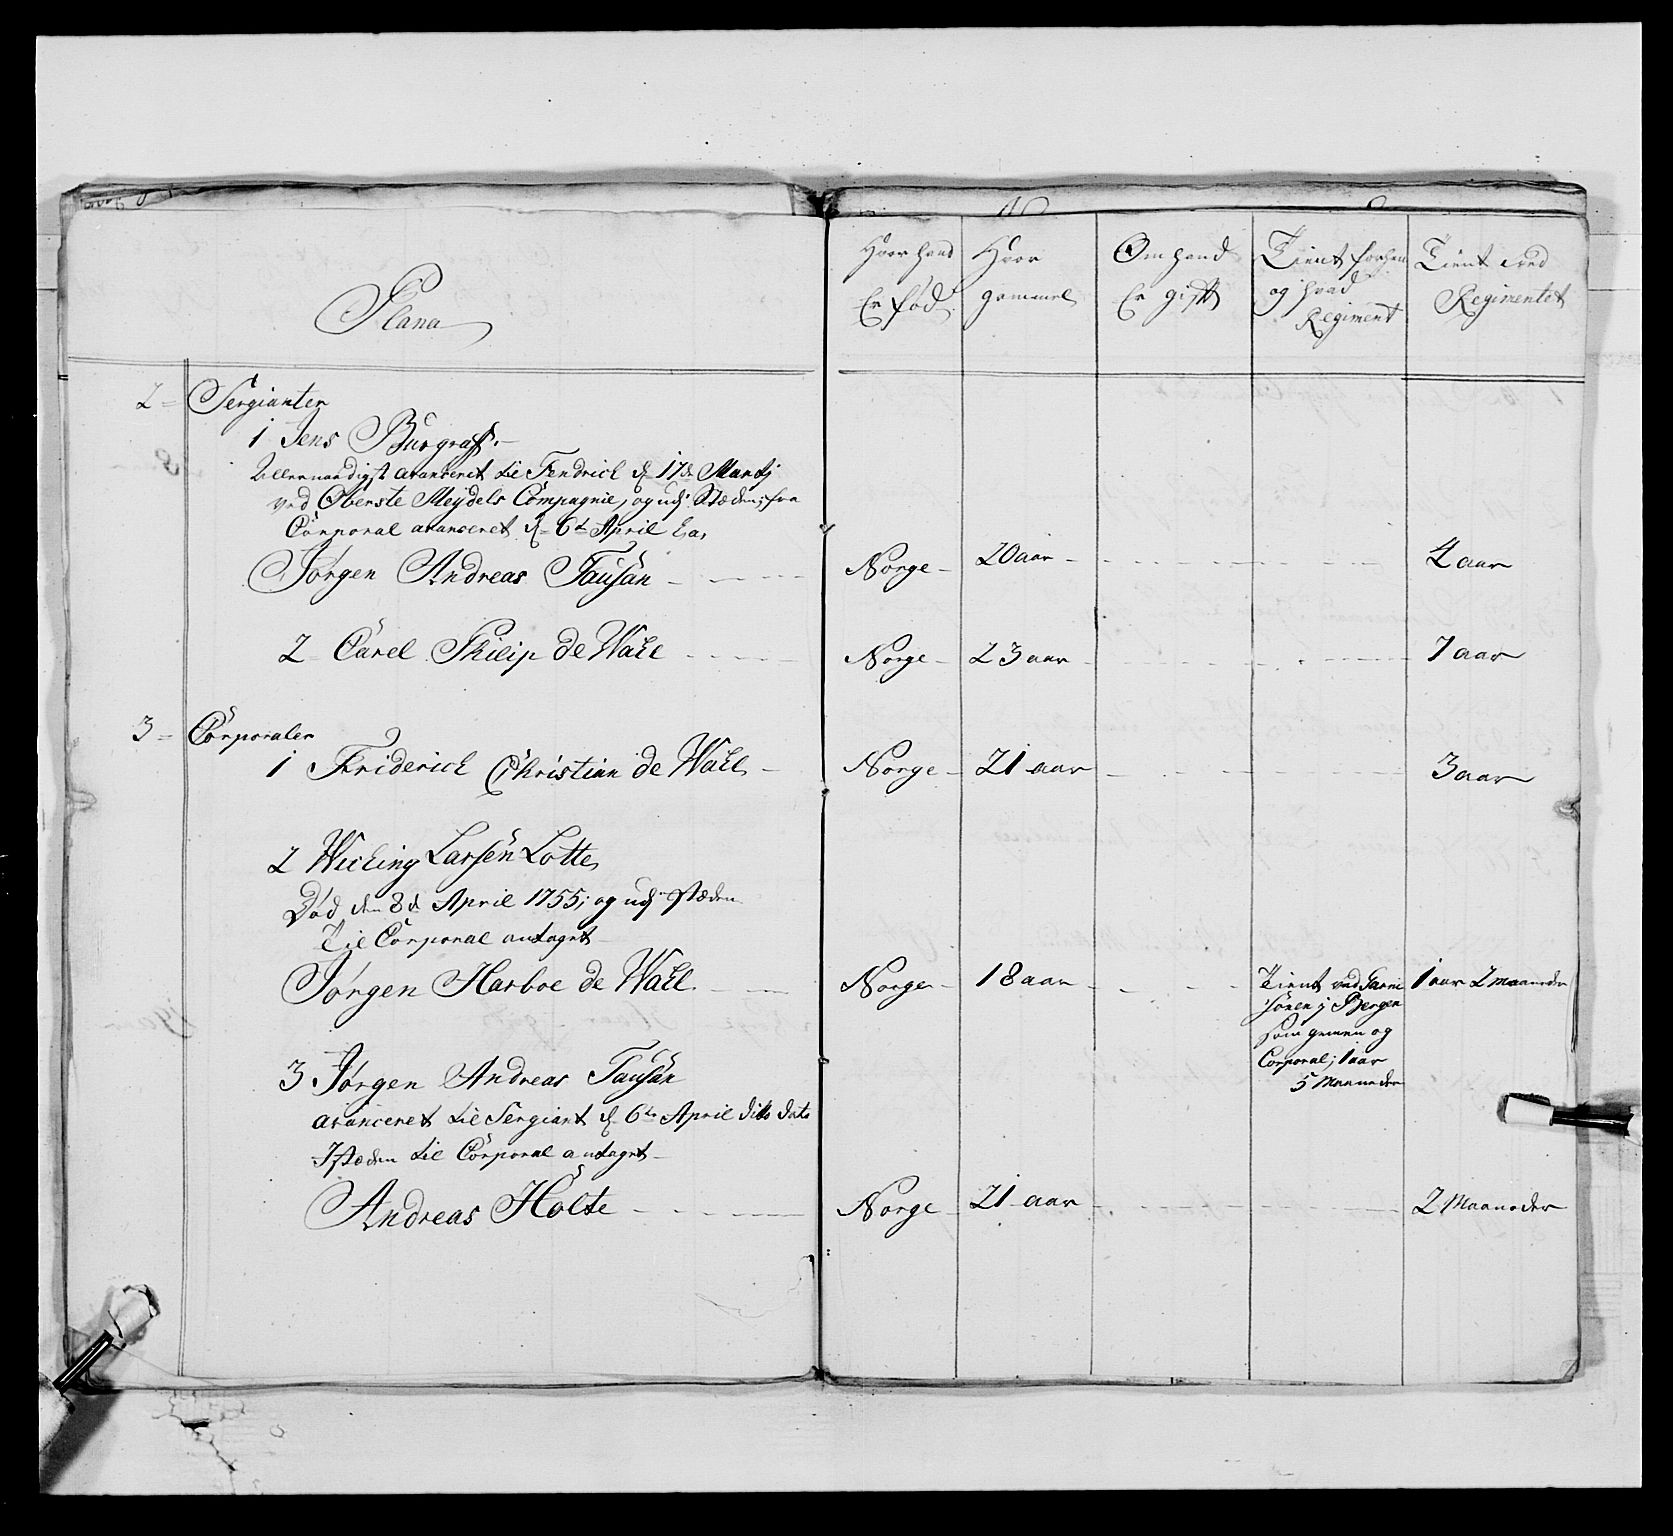 Plana
Hvor hand Er fød
Hvor gammel
Om hand Er gift
Tient forhen og hvad Regiment
Tient ved Regimentet
2 = Sergianter
1 Jens Burgraff.
Allernaadigst avanceret til Fendrich d 17de Martij
ved Oberste Meydels Compagnie, og udj Stæden, fra
Corporal avanceret d 6te April h: a:
Jørgen Andreas Tausan - Norge - 20 aar - 4 aar
2 Carel Philip de Wahl - Norge - 23 aar - 7 aar
3 = Corporaler
1 Friderich Christian de Wahl - Norge - 21 aar - 3 aar
2 Larsen Lotte
Død den 8de April 1755; og udj stæden
til Corporal antaget
Jørgen Harboe de Wahl - Norge - 18 aar - Tient ved Garni 1 aar 2 maaneder
sonen j Bergen
som gemen og
Corporal; 1 aar
5 Maaneder
3 Jørgen Andreas Tausan
avanceret til Sergiant d 6te April dito dato
I stæden til Corporal antaget
Andreas Holte - Norge - 21 aar - 2 Maaneder